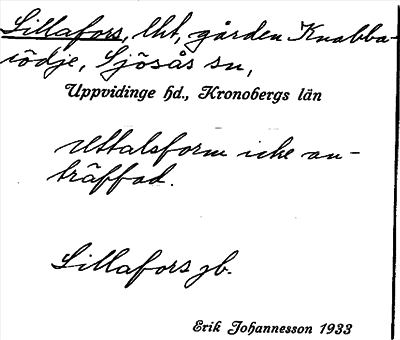 Lillafors, lht, gården Knabba-
rödje, Sjösås sn,
Uppvidinge hd., Kronobergs län
Uttalsform icke an-
träffad.
Lillafors jb.
Erik Johannesson 1933